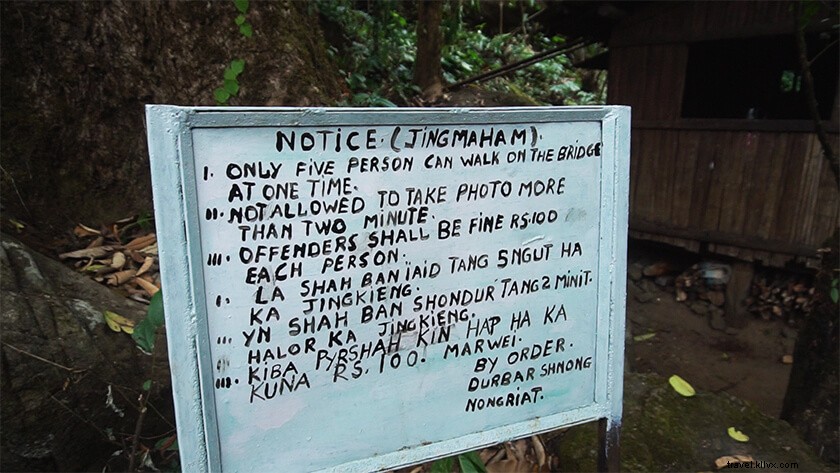 NOTICE. (JINGMAHAM).
I. ONLY FIVE PERSON CAN WALK ON THE BRIDGE
AT ONE TIME.
II. NOT ALLOWED TO TAKE PHOTO MORE
THAN TWO MINUTE.
III. OFFENDERS SHALL BE FINE RS.100
EACH PERSON.
I. LA SHAH BAN ÏAID TANG 5NGUT HA
KA JINGKIENG.
II. YN SHAH BAN SHONDUR TANG 2 MINIT.
HALOR KA JINGKIENG.
III. KIBA PYRSHAH KIN HAP HA KA
KUNA RS. 100. MARWEI.
BY ORDER.
DURBAR SHNONG
NONGRIAT.
travel.kllvx.com